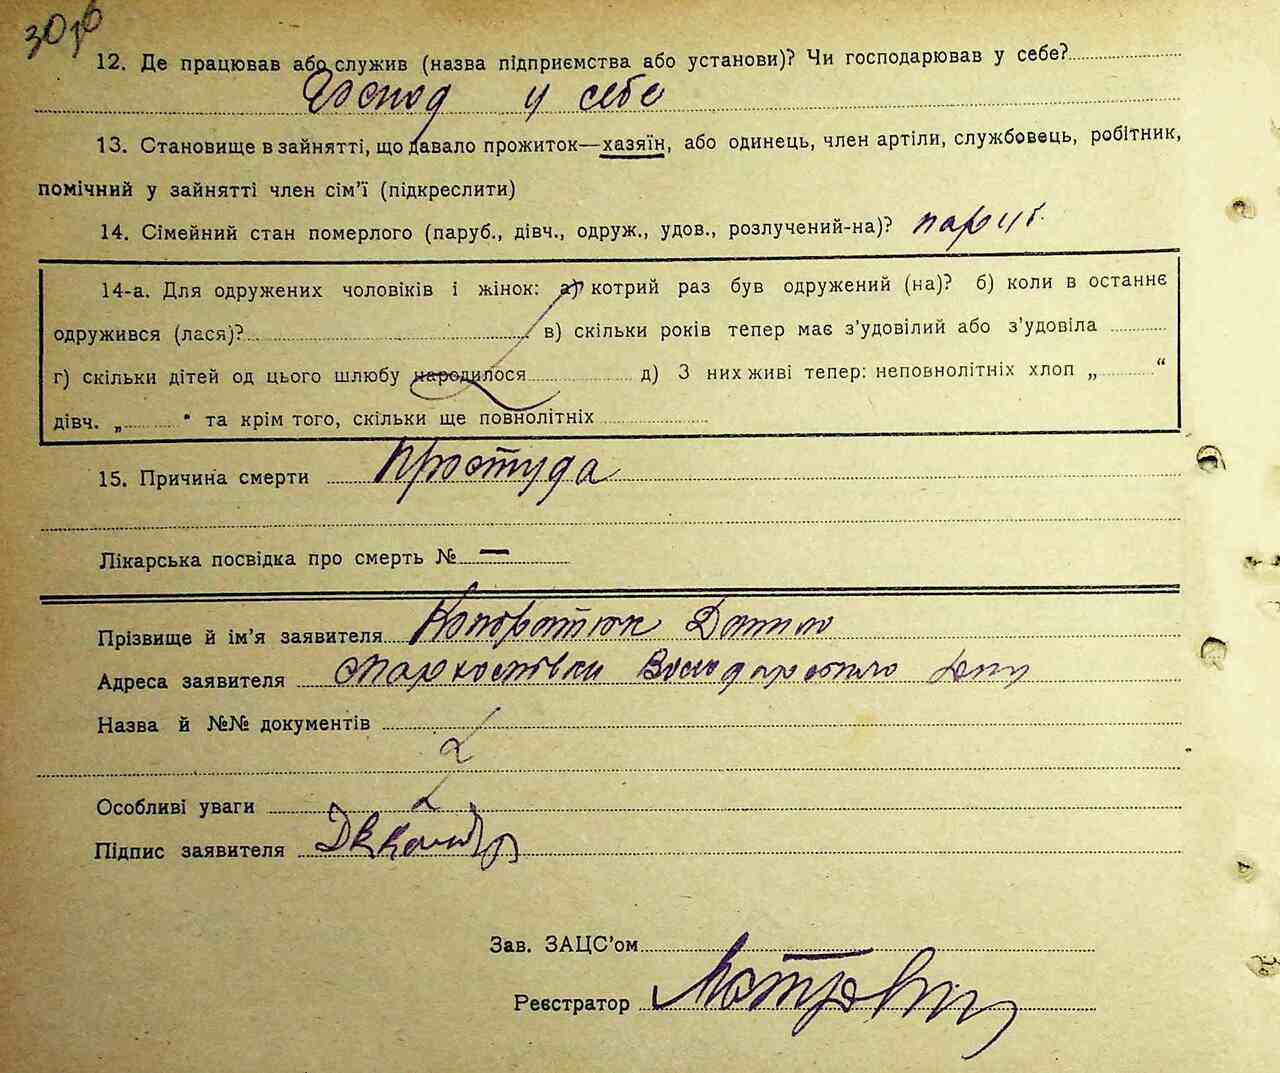 30 зв
12. Де працював або служив (назва підприємства або установи)? Чи господарював у себе?
Господ у себе
13. Становище в зайнятті, що давало прожиток—хазяїн, або одинець, член артіли, службовець, робітник,
помічний у зайнятті член сім'ї (підкреслити)
14. Сімейний стан померлого (паруб., дівч., одруж., удов., розлучений-на)? паруб.
14-а. Для одружених чоловіків і жінок: а) котрий раз був одружений (на)? б) коли в останнє
одружився (лася)? в) скільки років тепер має з'удовілий або з'удовіла
г) скільки дітей од цього шлюбу народилося д) З них живі тепер: неповнолітніх хлоп „ “
дівч. „ “ та крім того, скільки ще повнолітніх
15. Причина смерти простуда
Лікарська посвідка про смерть № —
Прізвище й ім'я заявителя Кондратюк Данило
Адреса заявителя
Назва й №№ документів
Особливі уваги
Підпис заявителя
Зав. ЗАЦС'ом
Реєстратор